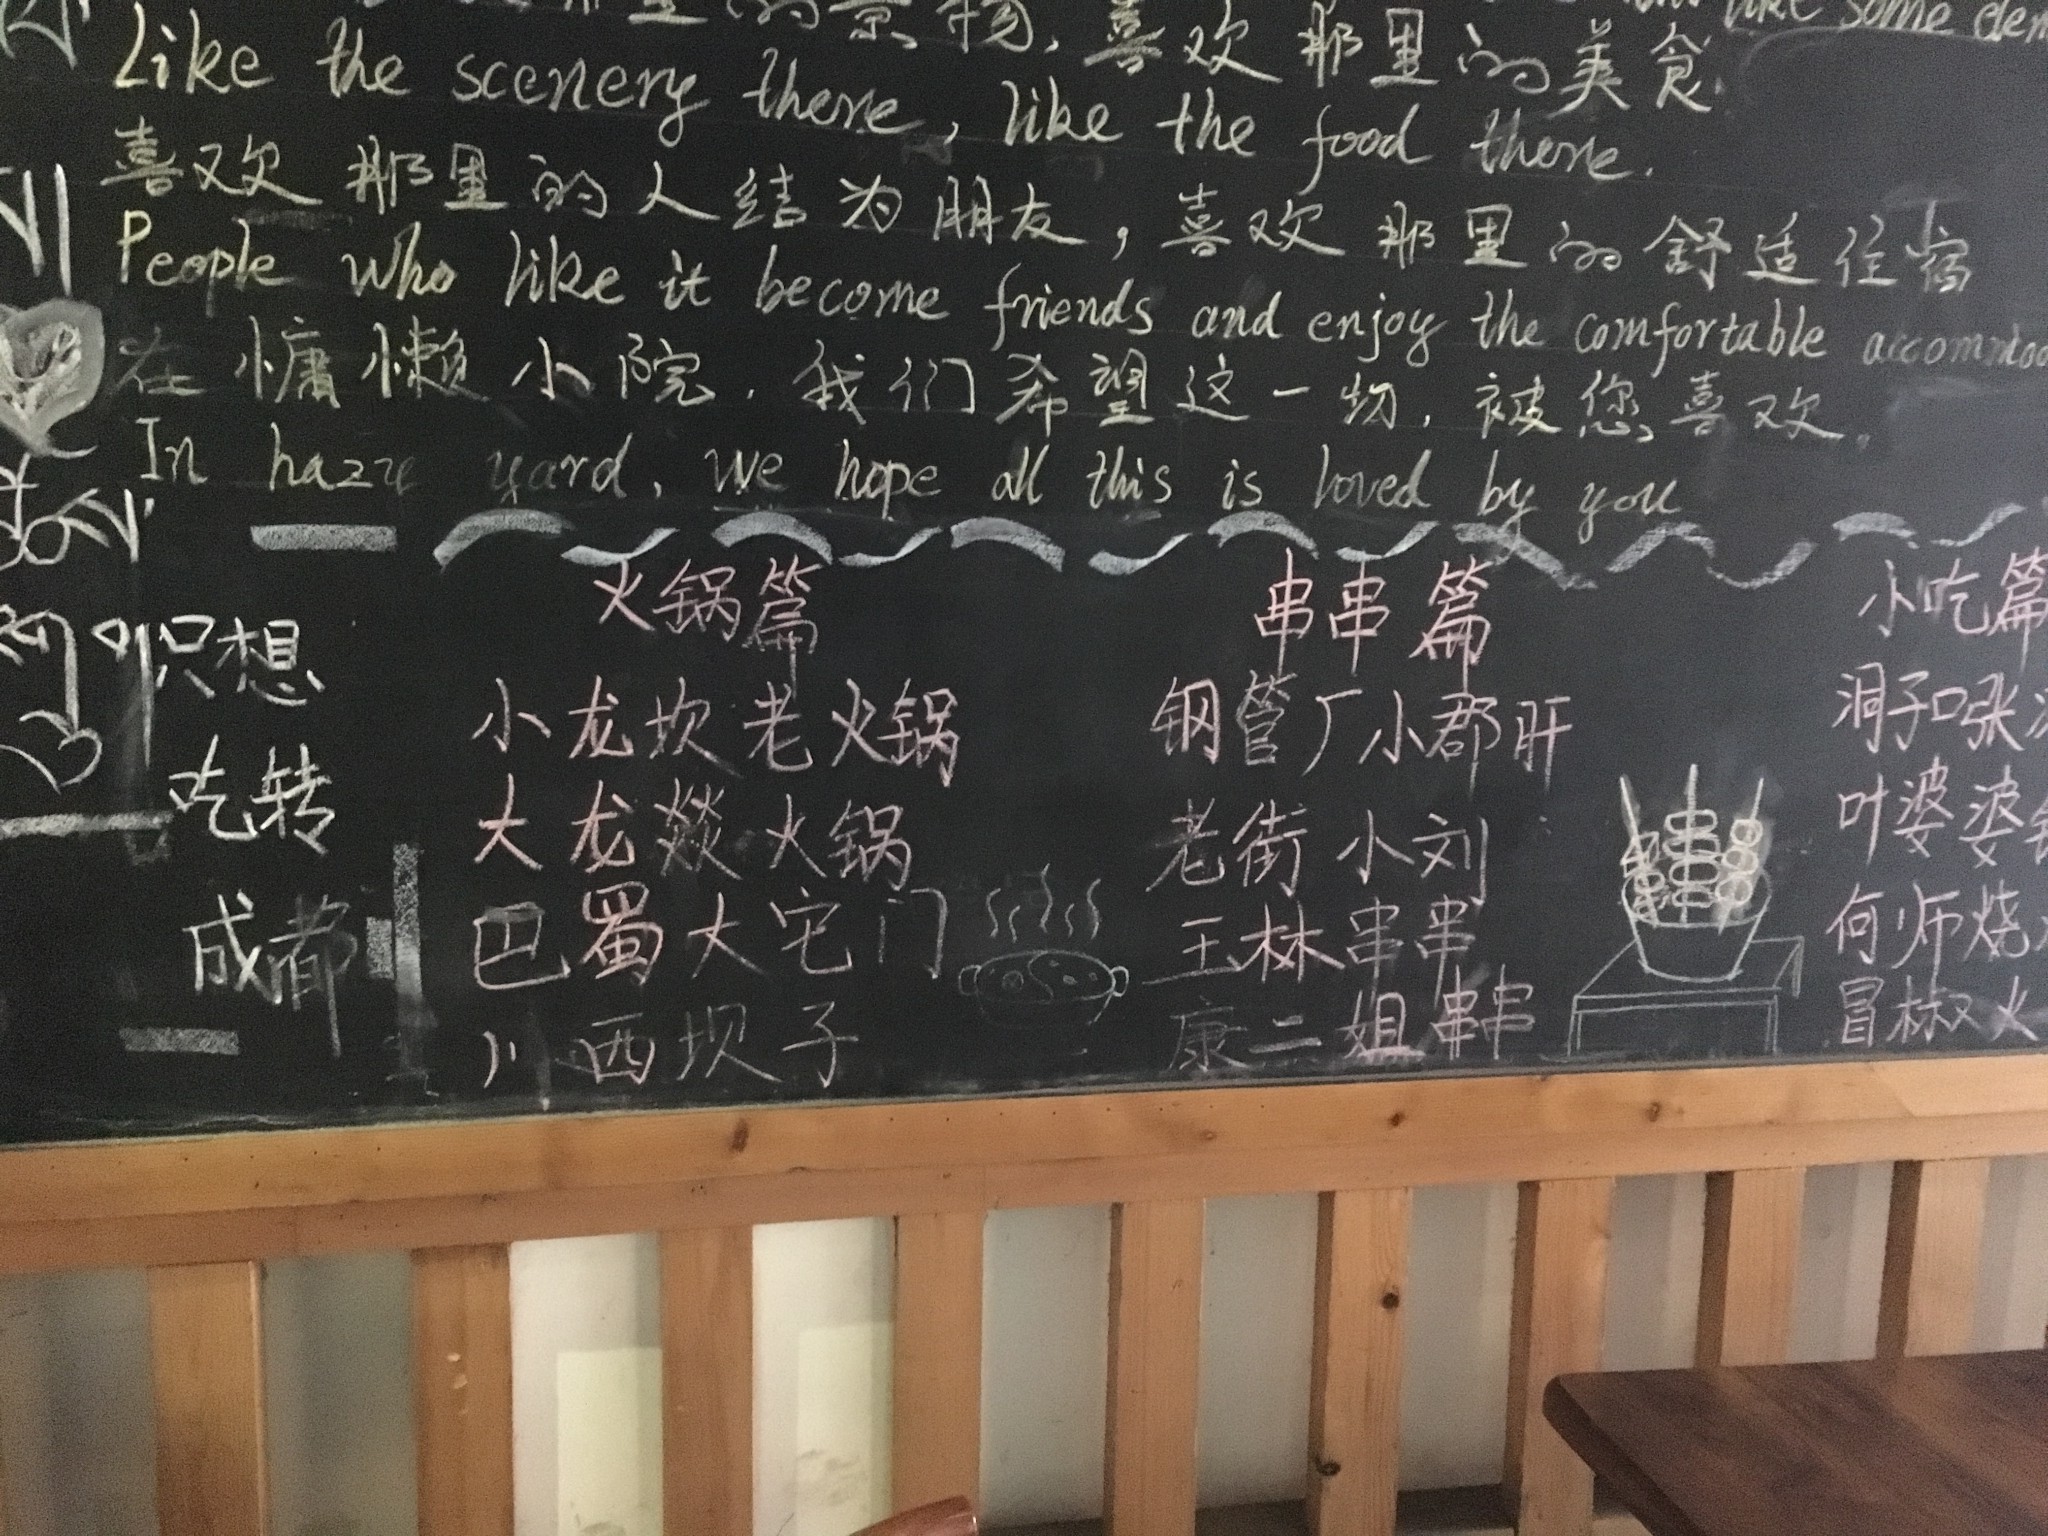 like some dem
那里的景物,喜欢那里的美食.
Like the scenery there, like the food there.
喜欢那里的人结为朋友,喜欢那里的舒适住宿
People who like it become friends and enjoy the comfortable accommod
在慵懒小院.我们希望这一物,被您喜欢.
In yard, we hope all this is loved by you
只想
吃转
成都
火锅篇
小龙坎老火锅
大龙燚火锅
巴蜀大宅门
川西坝子
串串篇
钢管厂小郡肝
老街小刘
王林串串
康二姐串串
小吃篇
洞子口张
叶婆婆
何师烧
冒椒火